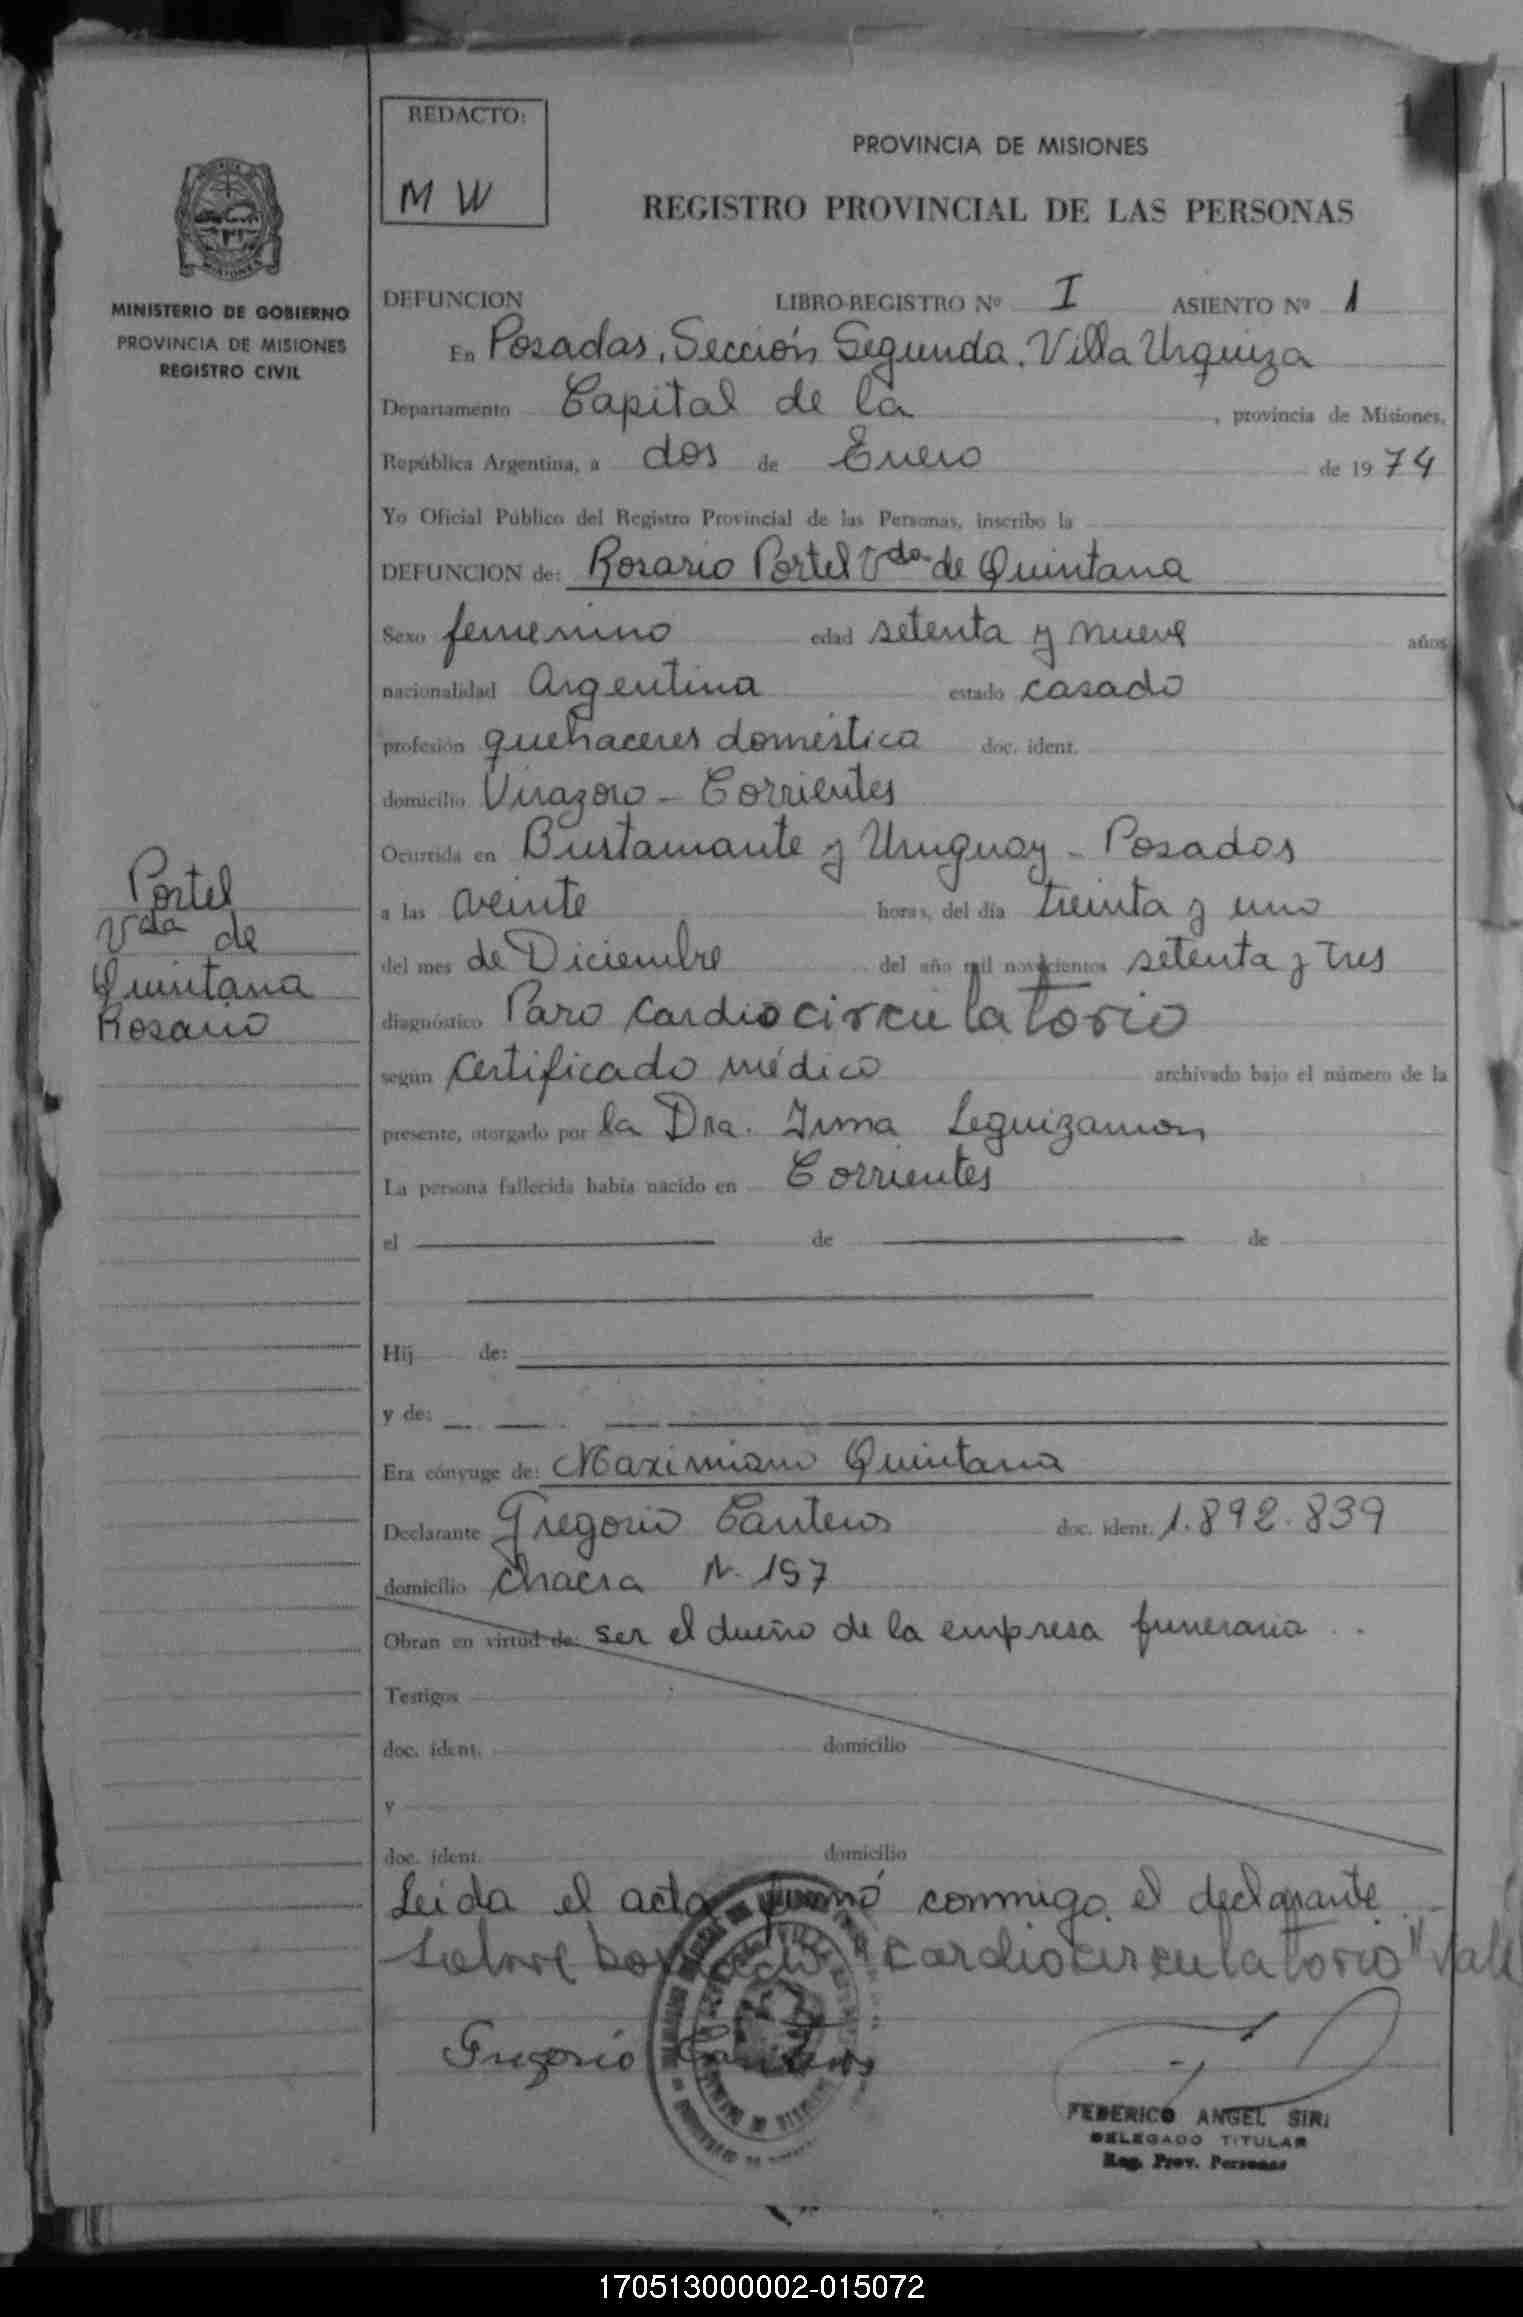 REDACTO:
M W
PROVINCIA DE MISIONES
REGISTRO PROVINCIAL DE LAS PERSONAS
MINISTERIO DE GOBIERNO
PROVINCIA DE MISIONES
REGISTRO CIVIL
DEFUNCION LIBRO-REGISTRO Nº I ASIENTO Nº 1
En Posadas, Sección Segunda. Villa Urquiza
Departamento Capital de la, provincia de Misiones,
República Argentina, a dos de Enero de 1974
Yo Oficial Público del Registro Provincial de las Personas, inscribo la
DEFUNCION de: Rosario Portel Vda de Quintana
Sexo femenino edad setenta y nueve años
nacionalidad Argentina estado casado
profesión quehaceres doméstica doc. ident.
domicilio Virazoro - Corrientes
Ocurrida en Bustamante y Uruguay - Posadas
a las veinte horas, del día treinta y uno
del mes de Diciembre del año mil novecientos setenta y tres
diagnóstico Paro cardiocirculatorio
según certificado médico archivado bajo el número de la
presente, otorgado por la Dra. Irma Leguizamon
La persona fallecida había nacido en Corrientes
el de de
Hij de:
y de:
Era cónyuge de: Maximiano Quintana
Declarante Gregorio Canteros doc. ident. 1.892.839
domicilio chacra N. 157
Obran en virtud de: ser el dueño de la empresa funeraria
Testigos
doc. ident. domicilio
y
doc. ident. domicilio
Leida el acta firmó conmigo el declarante
Sobre cardiocirculatorio" Vale
Gregorio Canteros
FEDERICO ANGEL SIRI
DELEGADO TITULAR
Reg. Prov. Personas
Portel
Vda de
Quintana
Rosario
170513000002-015072